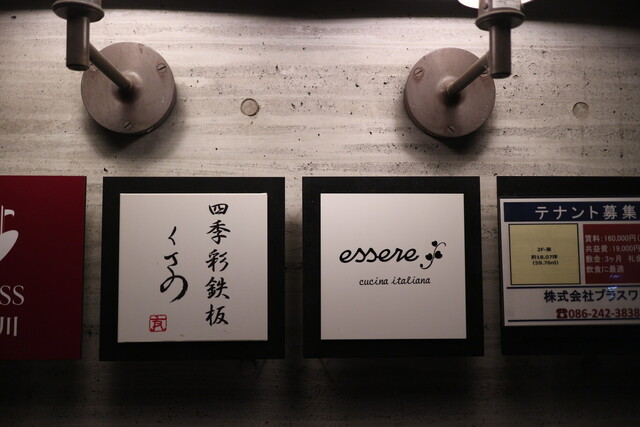 SS
川
四季彩鉄板
くさの
essere
cucina italiana
テナント募集
2F-東
約18.07坪
(59.76㎡)
賃料:160,000円
共益費:19,000
敷金:3ヶ月 礼
飲食に最適
株式会社プラスワ
☎086-242-3838